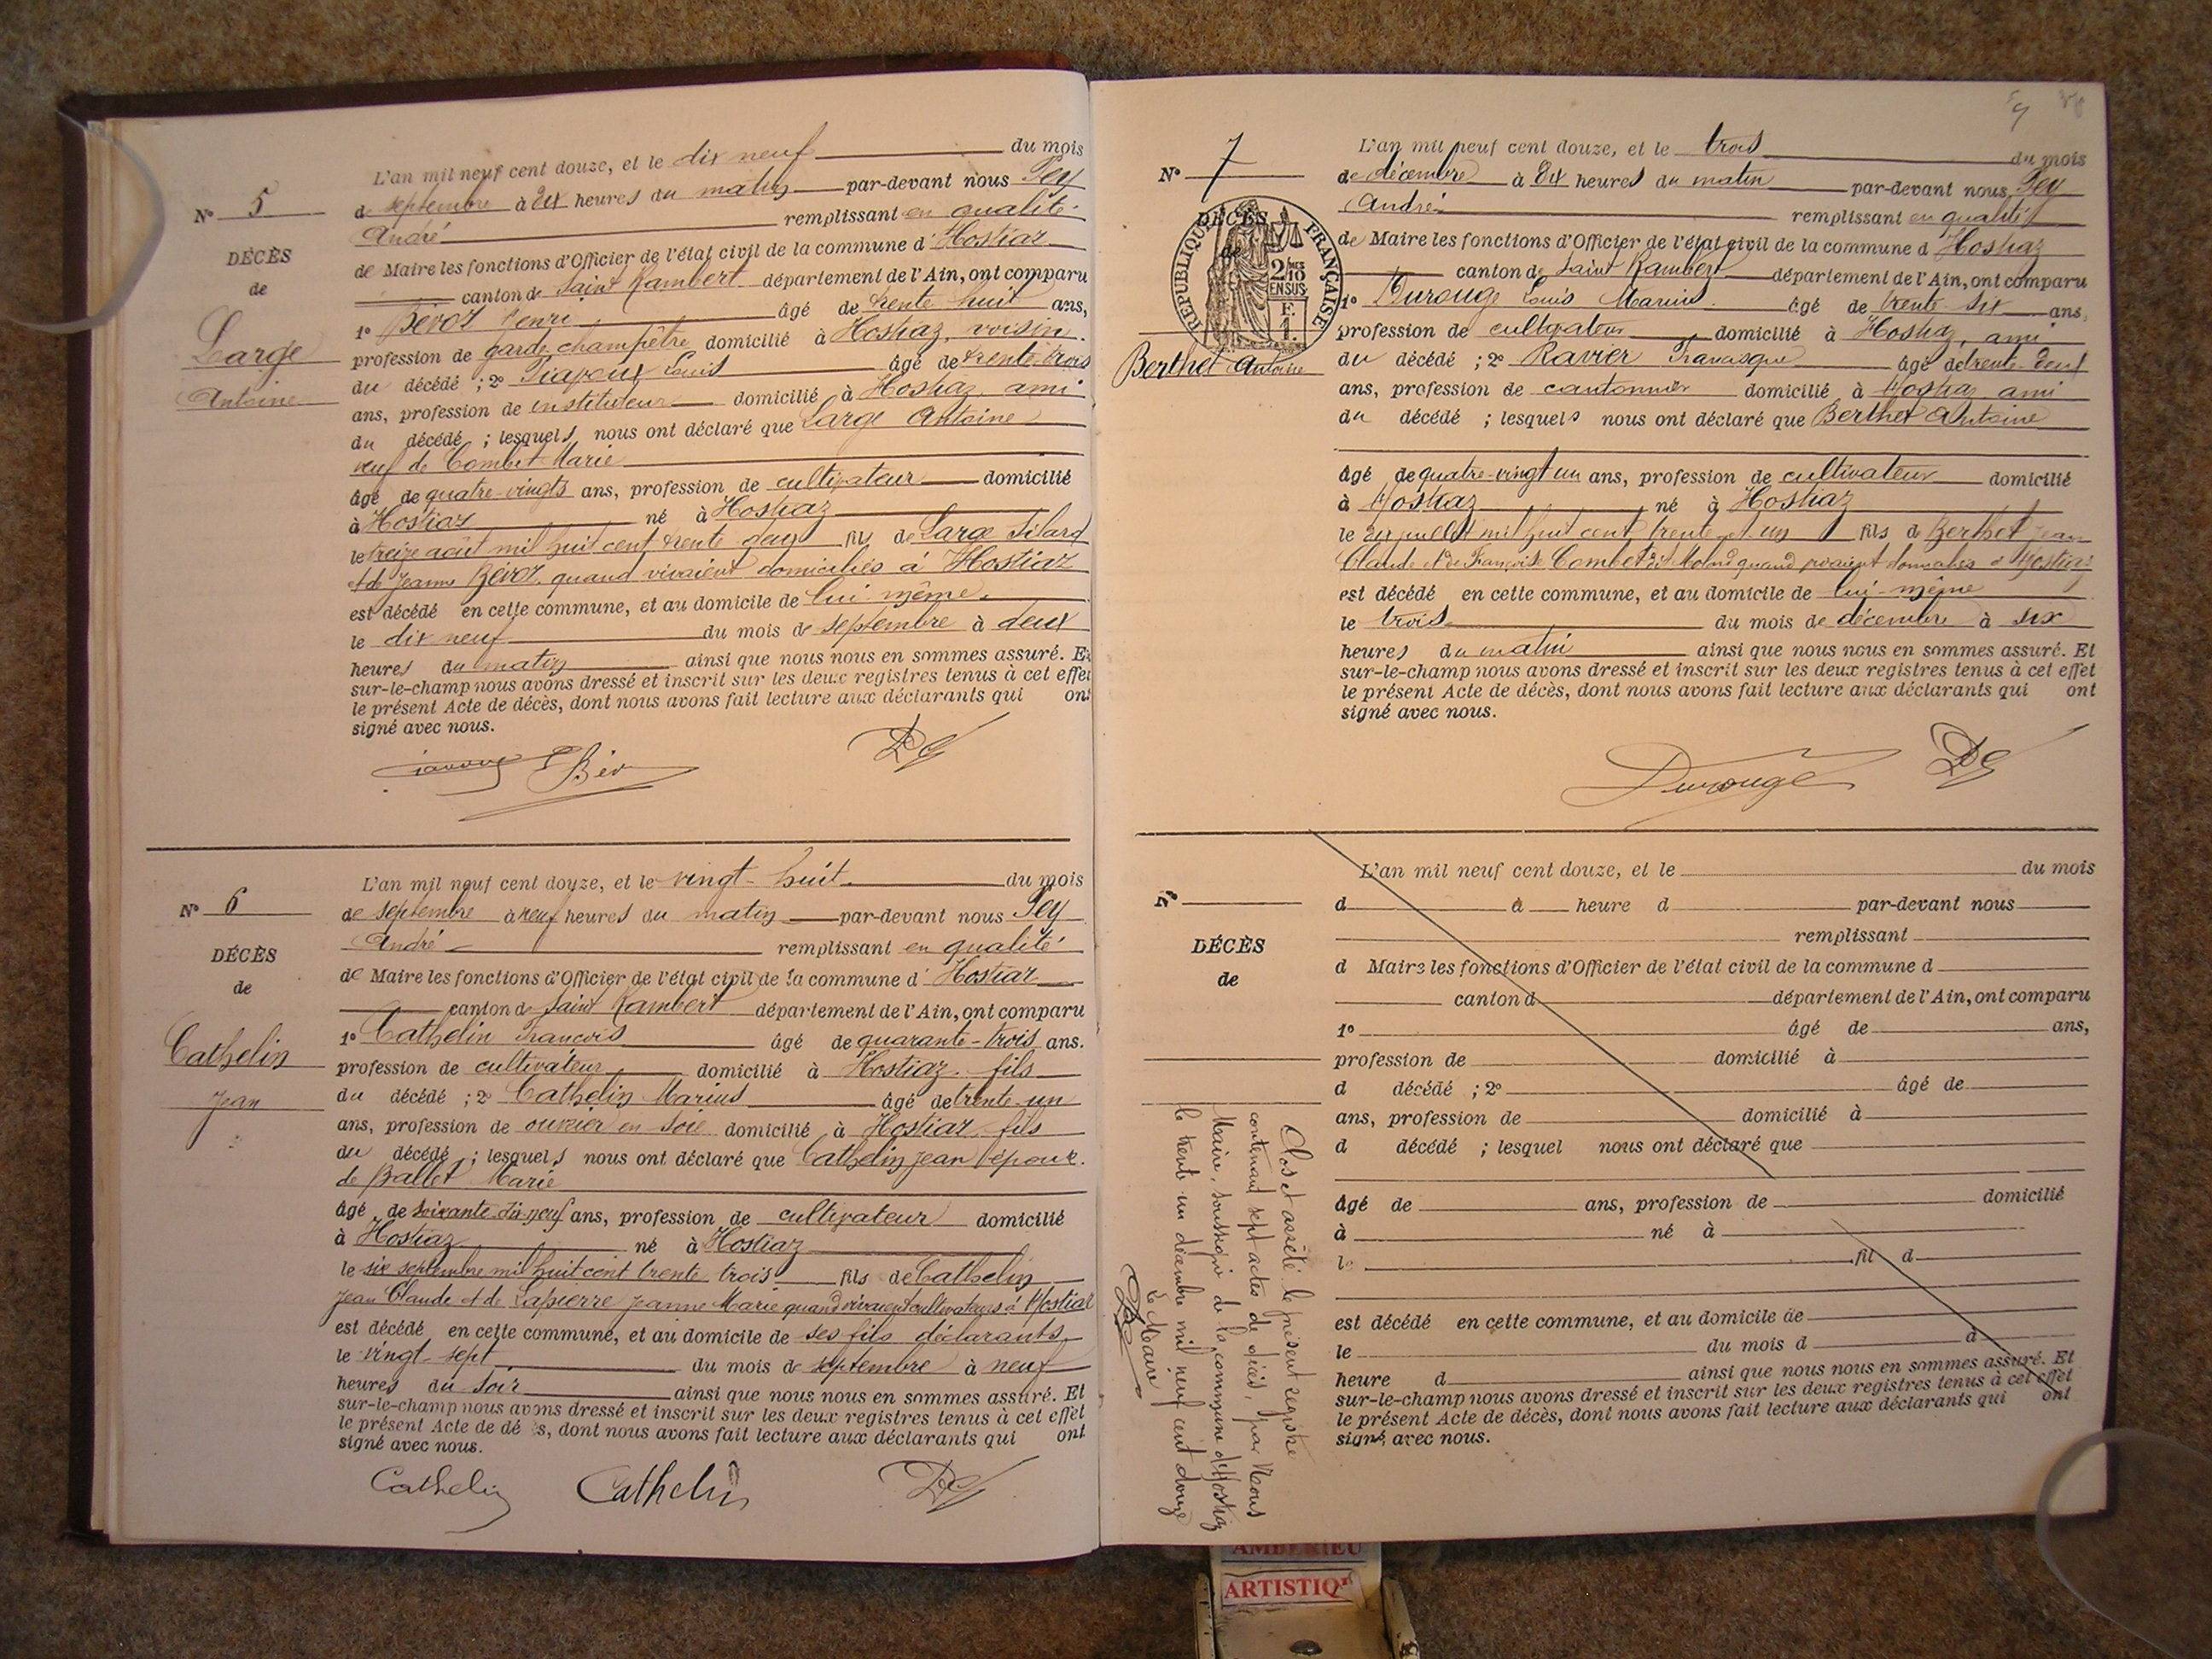 L'an mil neuf cent douze, et le dix neuf du mois
de septembre à dix heures du matin par-devant nous Pey
André remplissant en qualité
de Maire les fonctions d'Officier de l'état civil de la commune d'Hostiaz
canton de Saint Rambert département de l'Ain, ont comparu
1º Bévoz Henri âgé de trente huit ans,
profession de garde champêtre domicilié à Hostiaz, voisin
du décédé ; 2º Louis âgé de trente trois
ans, profession de instituteur domicilié à Hostiaz, ami
du décédé ; lesquels nous ont déclaré que Large Antoine
veuf de Combet Marie
âgé de quatre-vingts ans, profession de cultivateur domicilié
à Hostiaz né à Hostiaz
le treize août mil huit cent trente deux fils de Large
et de Jeanne Bévoz quand vivaient domiciliés à Hostiaz
est décédé en cette commune, et au domicile de lui même
le dix neuf du mois de septembre à deux
heures du matin ainsi que nous nous en sommes assuré. Et
sur-le-champ nous avons dressé et inscrit sur les deux registres tenus à cet effet
le présent Acte de décès, dont nous avons fait lecture aux déclarants qui ont
signé avec nous.
Nº 5
DÉCÈS
de
Large
Antoine
L'an mil neuf cent douze, et le vingt-huit du mois
de septembre à neuf heures du matin par-devant nous Pey
André remplissant en qualité
de Maire les fonctions d'Officier de l'état civil de la commune d'Hostiaz
canton de Saint Rambert département de l'Ain, ont comparu
1º Cathelin François âgé de quarante-trois ans.
profession de cultivateur domicilié à Hostiaz fils
du décédé ; 2º Cathelin Marius âgé de trente un
ans, profession de ouvrier en soie domicilié à Hostiaz fils
du décédé ; lesquels nous ont déclaré que Cathelin Jean époux
de Ballet Marie
âgé de soixante-dix-neuf ans, profession de cultivateur domicilié
à Hostiaz né à Hostiaz
le six septembre mil huit cent trente trois fils de Cathelin
Jean Claude et de Lapierre Jeanne Marie quand vivaient cultivateurs à Hostiaz
est décédé en cette commune, et au domicile de ses fils déclarants
le vingt-sept du mois de septembre à neuf
heures du soir ainsi que nous nous en sommes assuré. Et
sur-le-champ nous avons dressé et inscrit sur les deux registres tenus à cet effet
le présent Acte de décès, dont nous avons fait lecture aux déclarants qui ont
signé avec nous.
Cathelin Cathelin
Nº 6
DÉCÈS
de
Cathelin
Jean
L'an mil neuf cent douze, et le trois du mois
de décembre à dix heures du matin par-devant nous Pey
André remplissant en qualité
de Maire les fonctions d'Officier de l'état civil de la commune d'Hostiaz
canton de Saint Rambert département de l'Ain, ont comparu
1º Durouge Louis Marius âgé de trente-six ans,
profession de cultivateur domicilié à Hostiaz, ami
du décédé ; 2º Ravier âgé de trente-deux
ans, profession de cantonnier domicilié à Hostiaz ami
du décédé ; lesquels nous ont déclaré que Berthet Antoine
âgé de quatre-vingt un ans, profession de cultivateur domicilié
à Hostiaz né à Hostiaz
le juillet mil huit cent trente et un fils de Berthet Jean
Claude et de Françoise Combet dit quand vivaient domiciliés à Hostiaz
est décédé en cette commune, et au domicile de lui-même
le trois du mois de décembre à six
heures du matin ainsi que nous nous en sommes assuré. Et
sur-le-champ nous avons dressé et inscrit sur les deux registres tenus à cet effet
le présent Acte de décès, dont nous avons fait lecture aux déclarants qui ont
signé avec nous.
Durouge
Nº 7
DÉCÈS
de
RÉPUBLIQUE FRANÇAISE
2/10
EN SUS
Berthet Antoine
L'an mil neuf cent douze, et le du mois
d à heure d par-devant nous
remplissant
d Maire les fonctions d'Officier de l'état civil de la commune d
canton d département de l'Ain, ont comparu
1º âgé de ans,
profession de domicilié à
d décédé ; 2º âgé de
ans, profession de domicilié à
d décédé ; lesquel nous ont déclaré que
âgé de ans, profession de domicilié
à né à
le fil d
est décédé en cette commune, et au domicile de
le du mois d à
heure d ainsi que nous nous en sommes assuré. Et
sur-le-champ nous avons dressé et inscrit sur les deux registres tenus à cet effet
le présent Acte de décès, dont nous avons fait lecture aux déclarants qui ont
signé avec nous.
Nº
DÉCÈS
de
Clos et arrêté le présent registre
contenant sept actes de décès, par Nous
Maire, soussigné de la commune d'Hostiaz
le trente un décembre mil neuf cent douze
Le Maire
AMBERIEU
ARTISTIQ